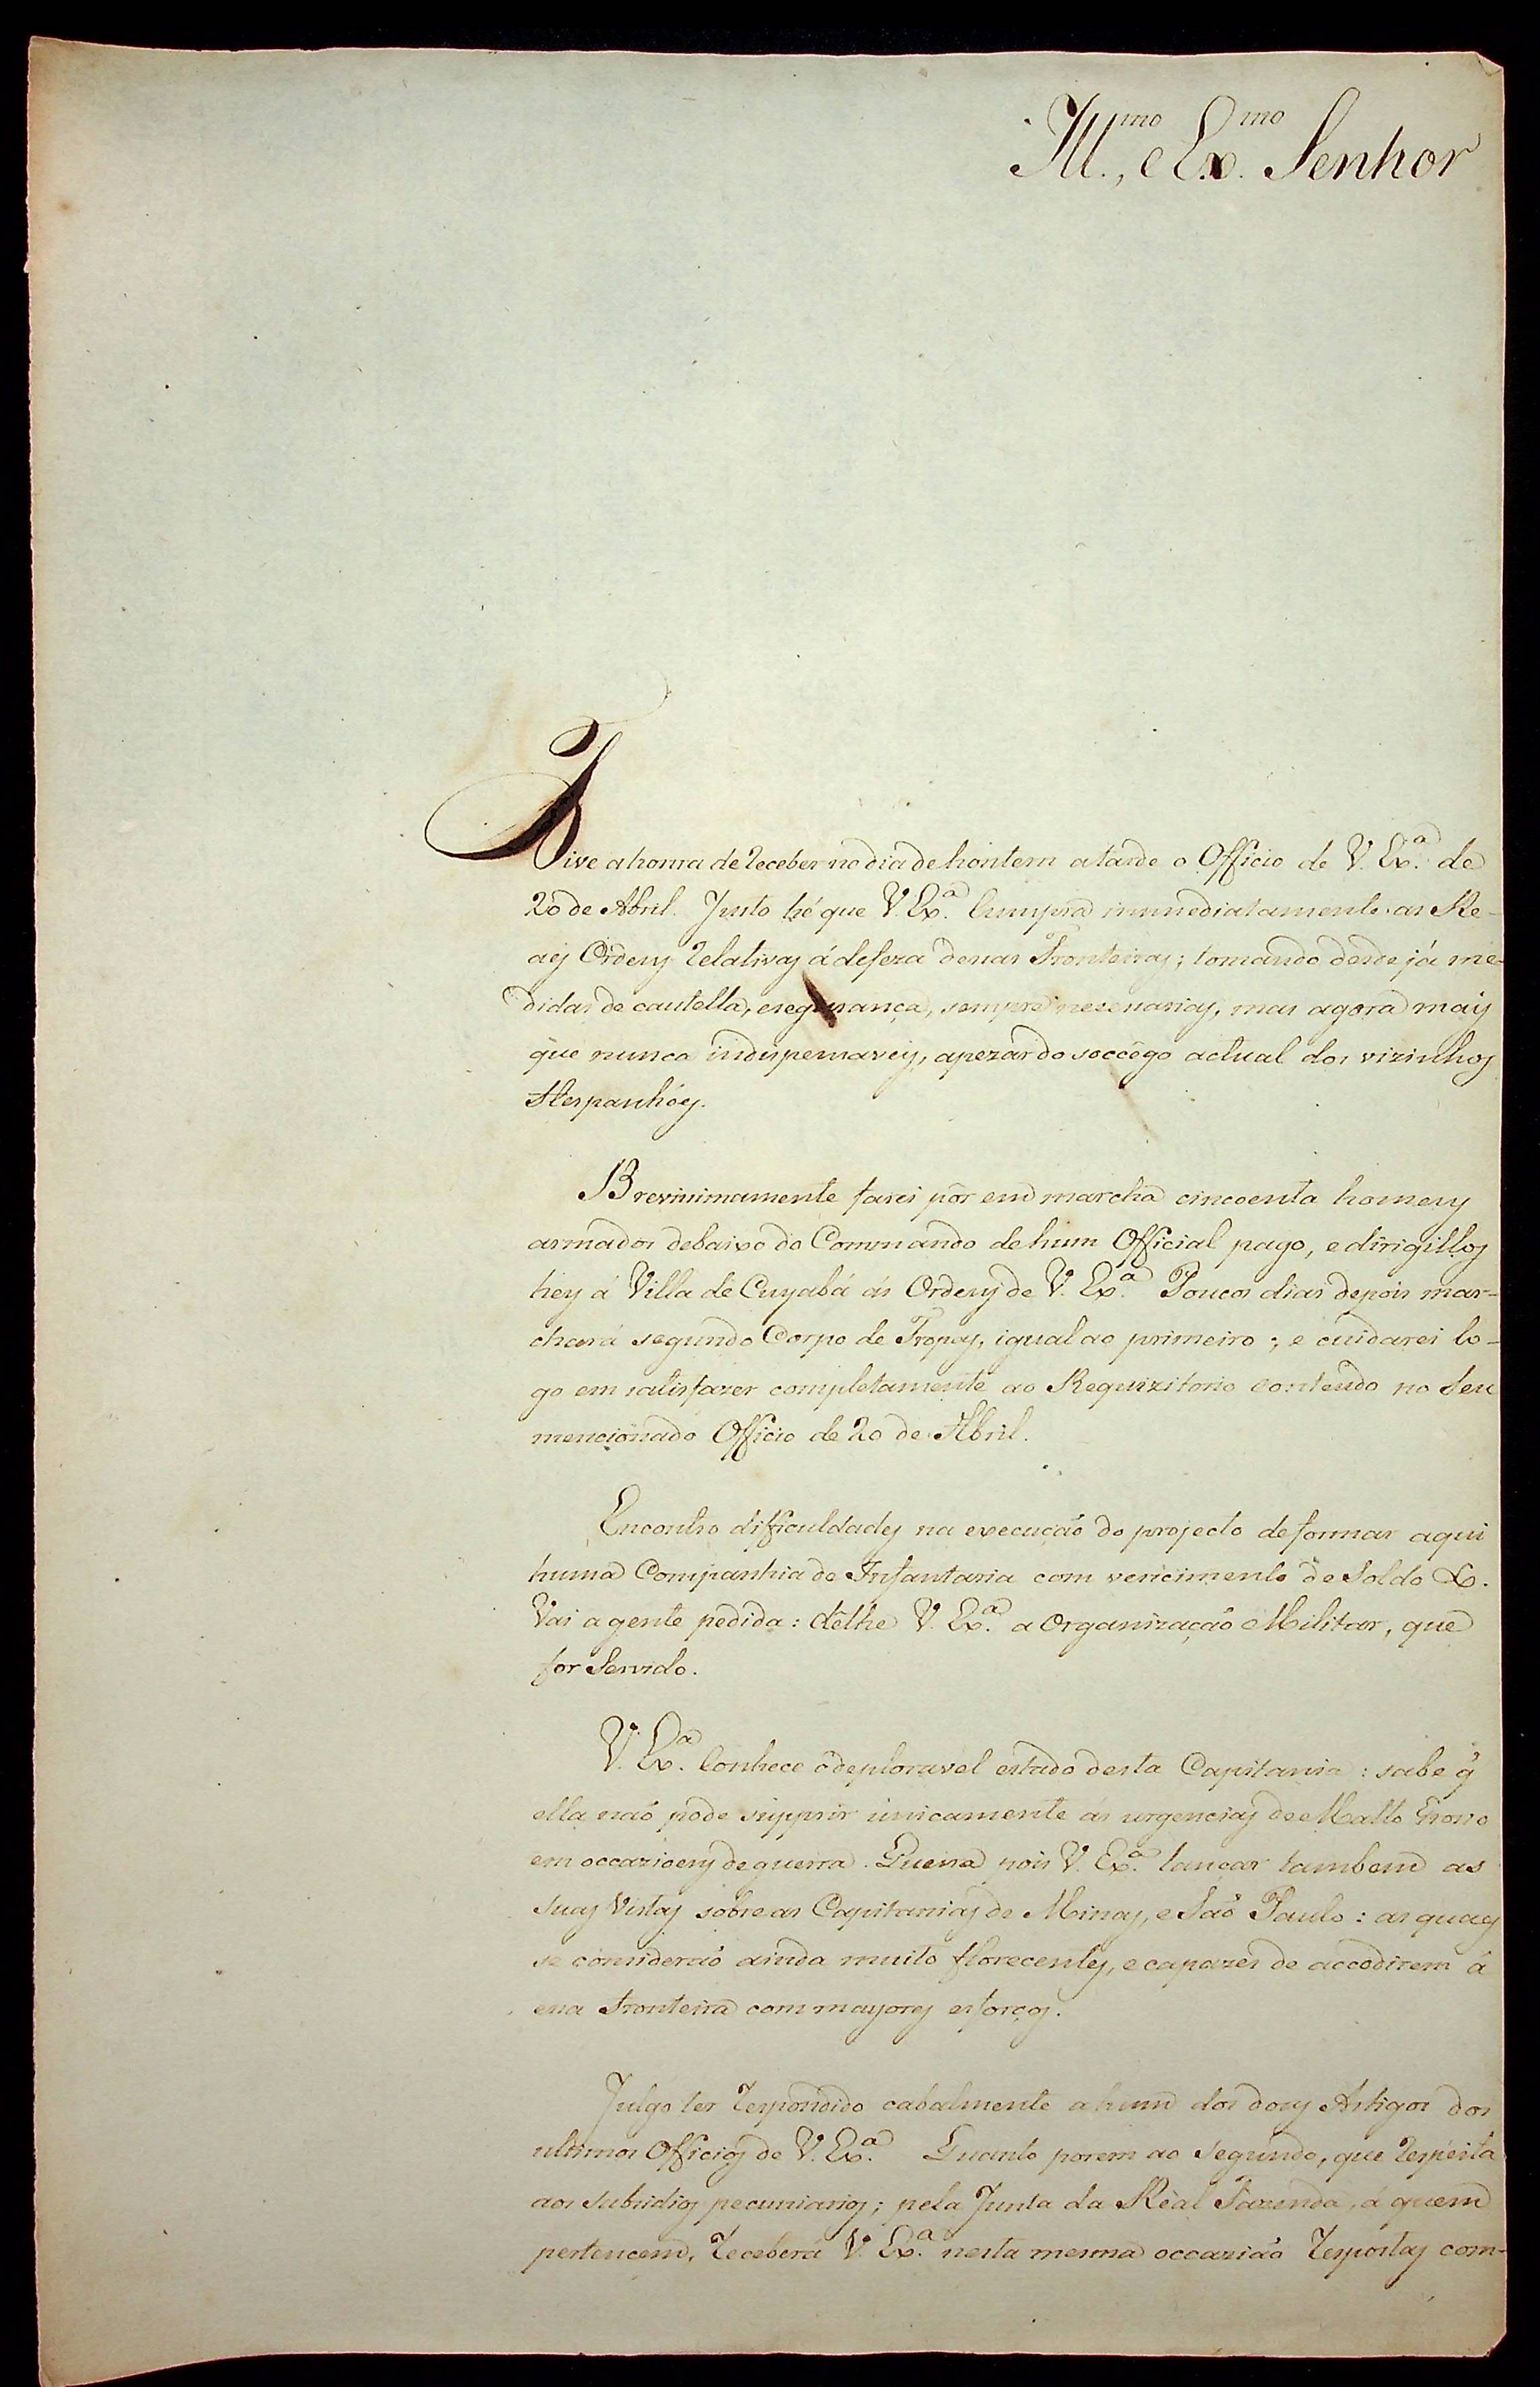 Ill.mo, e Ex.mo Senhor
Tive a honra de receber no dia de hontem a tarde o Officio de V. Ex.a de
20 de Abril. Justo hé que V. Ex.a Cumpra immediatamente as Re-
aes Ordens relativas á defeza dessas Fronteiras; tomando desde já me-
didas de cautella, e segurança, sempre necessarias, mas agora mais
que nunca indispensaveis, apezar do soccêgo actual dos vizinhos
Hespanhóes.
Brevissimamente farei pôr em marcha cincoenta homens
armados debaixo do Commando de hum Official pago, e dirigillos
hey á Villa de Cuyabá ás Ordens de V. Ex.a Poucos dias depois mar-
chará segundo Corpo de Tropas, igual ao primeiro; e cuidarei lo-
go em satisfazer completamente ao Requizitorio contendo no Seu
mencionado Officio de 20 de Abril.
Encontro difficuldades na execução do projecto de formar aqui
huma Companhia de Infantaria com vencimento de Soldo &.
Vai a gente pedida: dêlhe V. Ex.a a Organização Militar, que
for Servido.
V. Ex.a Conhece o deploravel estado desta Capitania: sabe q̃
ella não póde supprir unicamente ás urgencias de Matto Grosso
em occazioens de guerra. Queira pois V. Ex.a lançar tambem as
Suas Vistas sobre as Capitanias de Minas, e São Paulo: as quaes
se considerão ainda muito florecentes, e capazes de accodirem á
essa Fronteira com mayores esforços.
Julgo ter respondido cabalmente a hum dos dous Artigos dos
ultimos Officios de V. Ex.a Quanto porem ao Segundo, que respeita
aos Subsidios pecuniarios; pela Junta da Real Fazenda, á quem
pertencem, receberá V. Ex.a nesta mesma occazião respostas com-